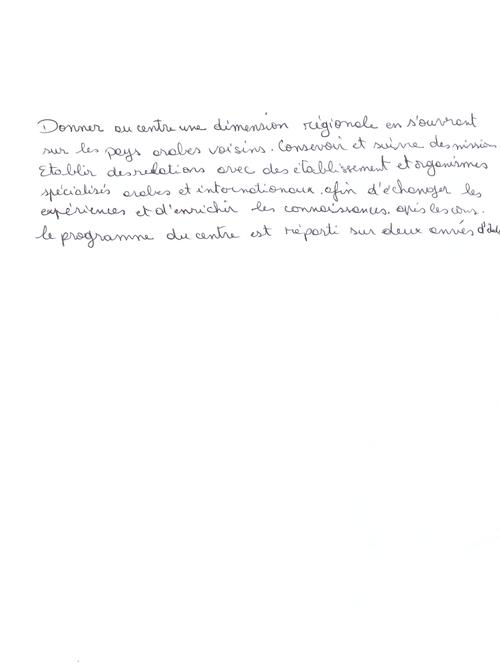 Donner au centre une dimension régionale en s'ouvrant
sur les pays arabes voisins. Conservoir et suivre des mission
Etablir des relations avec des établissement et organismes
spécialisés arabes et internationaux. afin d'échanger les
expériences et d'enrichir les connaissances. après les cons.
le programme du centre est réparti sur deux années